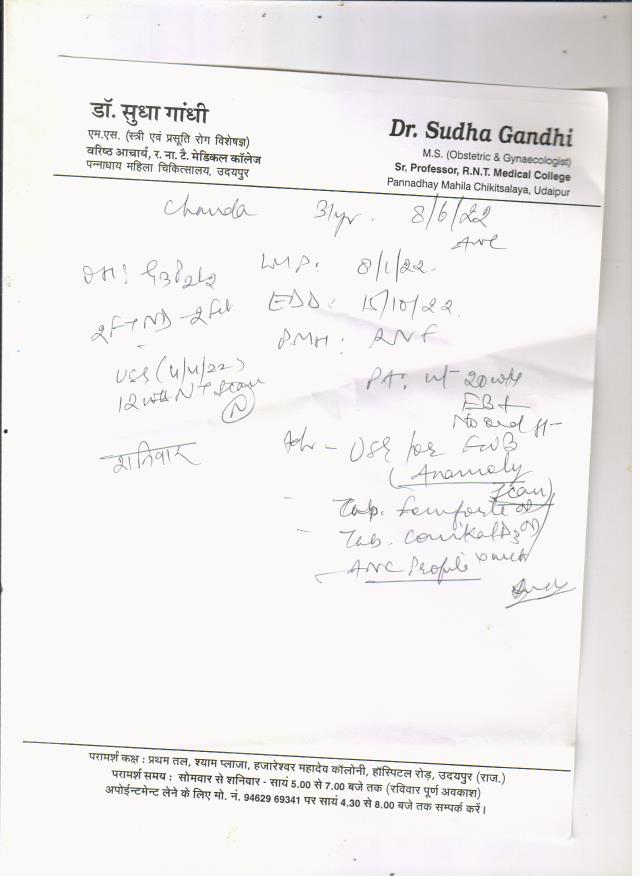 डॉ. सुधा गांधी
एम.एस. (स्त्री एवं प्रसूति रोग विशेषज्ञ)
वरिष्ठ आचार्य, र. ना. टै. मेडिकल कॉलेज
पन्नाधाय महिला चिकित्सालय, उदयपुर
Dr. Sudha Gandhi
M.S. (Obstetric & Gynaecologist)
Sr, Professor, R.N.T. Medical College
Pannadhay Mahila Chikitsalaya, Udaipur
Chanda 31yr. 8/6/22
ANC
OH: G3P2L2 LMP: 8/1/22.
2FTND - EDD: 15/10/22.
PMH:
USG (4/4/22)
12 wk NT scan
(N)
PA: ut 20 wks
EB+
शनिवार
Adv - USG for FWB
(Anamoly
Scan)
- Tab.
- Tab. D3
ANC Profile
परामर्श कक्ष : प्रथम तल, श्याम प्लाजा, हजारेश्वर महादेव कॉलोनी, हॉस्पिटल रोड़, उदयपुर (राज.)
परामर्श समय : सोमवार से शनिवार - सायं 5.00 से 7.00 बजे तक (रविवार पूर्ण अवकाश)
अपोईन्टमेन्ट लेने के लिए मो. नं. 94629 69341 पर सायं 4.30 से 8.00 बजे तक सम्पर्क करें।